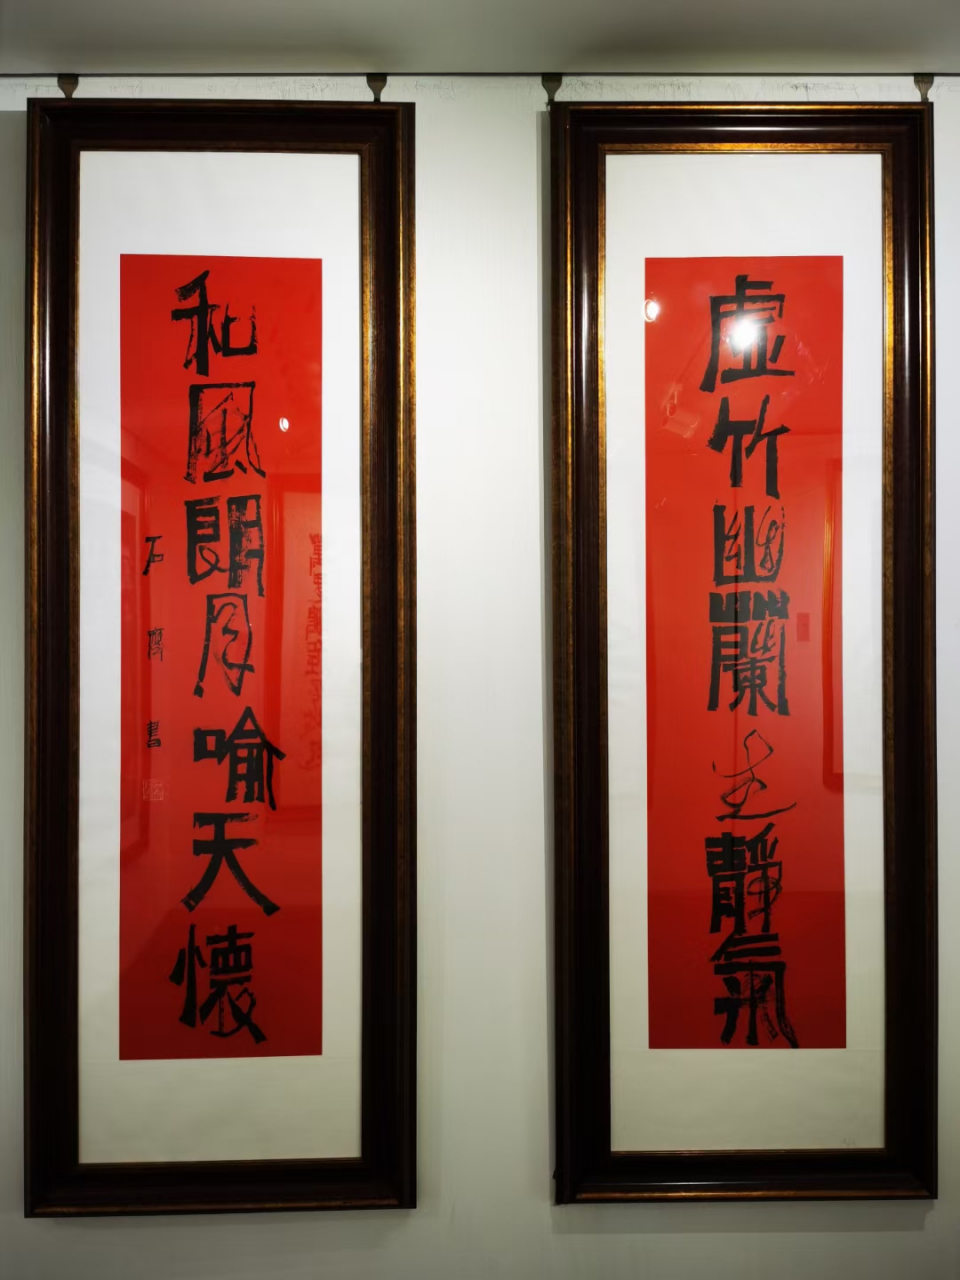 虛竹幽蘭生靜氣
和風朗月喻天懷
石齊書